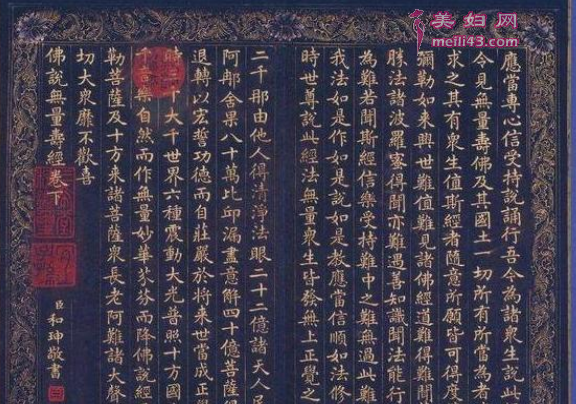 美妇网
meili43.com
應當專心信受持說誦行吾今為諸眾生說此
今見無量壽佛及其國土一切所有所當為者
求之其有眾生值斯經者隨意所願皆可得度
彌勒如來興世難值難見諸佛經道難得難聞
勝法諸波羅蜜得聞亦難遇善知識聞法能行
為難若聞斯經信樂受持難中之難無過此難
我法如是作如是說如是教應當信順如法修
時世尊說此經法無量眾生皆發無上正覺之
二千那由他人得清淨法眼二十二億諸天人民
阿那舍果八十萬比邱漏盡意解四十億菩薩得
退轉以宏誓功德而自莊嚴於將來世當成正
時三千大千世界六種震動大光普照十方國
音樂自然而作無量妙華芬芬而降佛說經
勒菩薩及十方來諸菩薩眾長老阿難諸大聲
切大眾靡不歡喜
佛說無量壽經卷下
臣和珅敬書